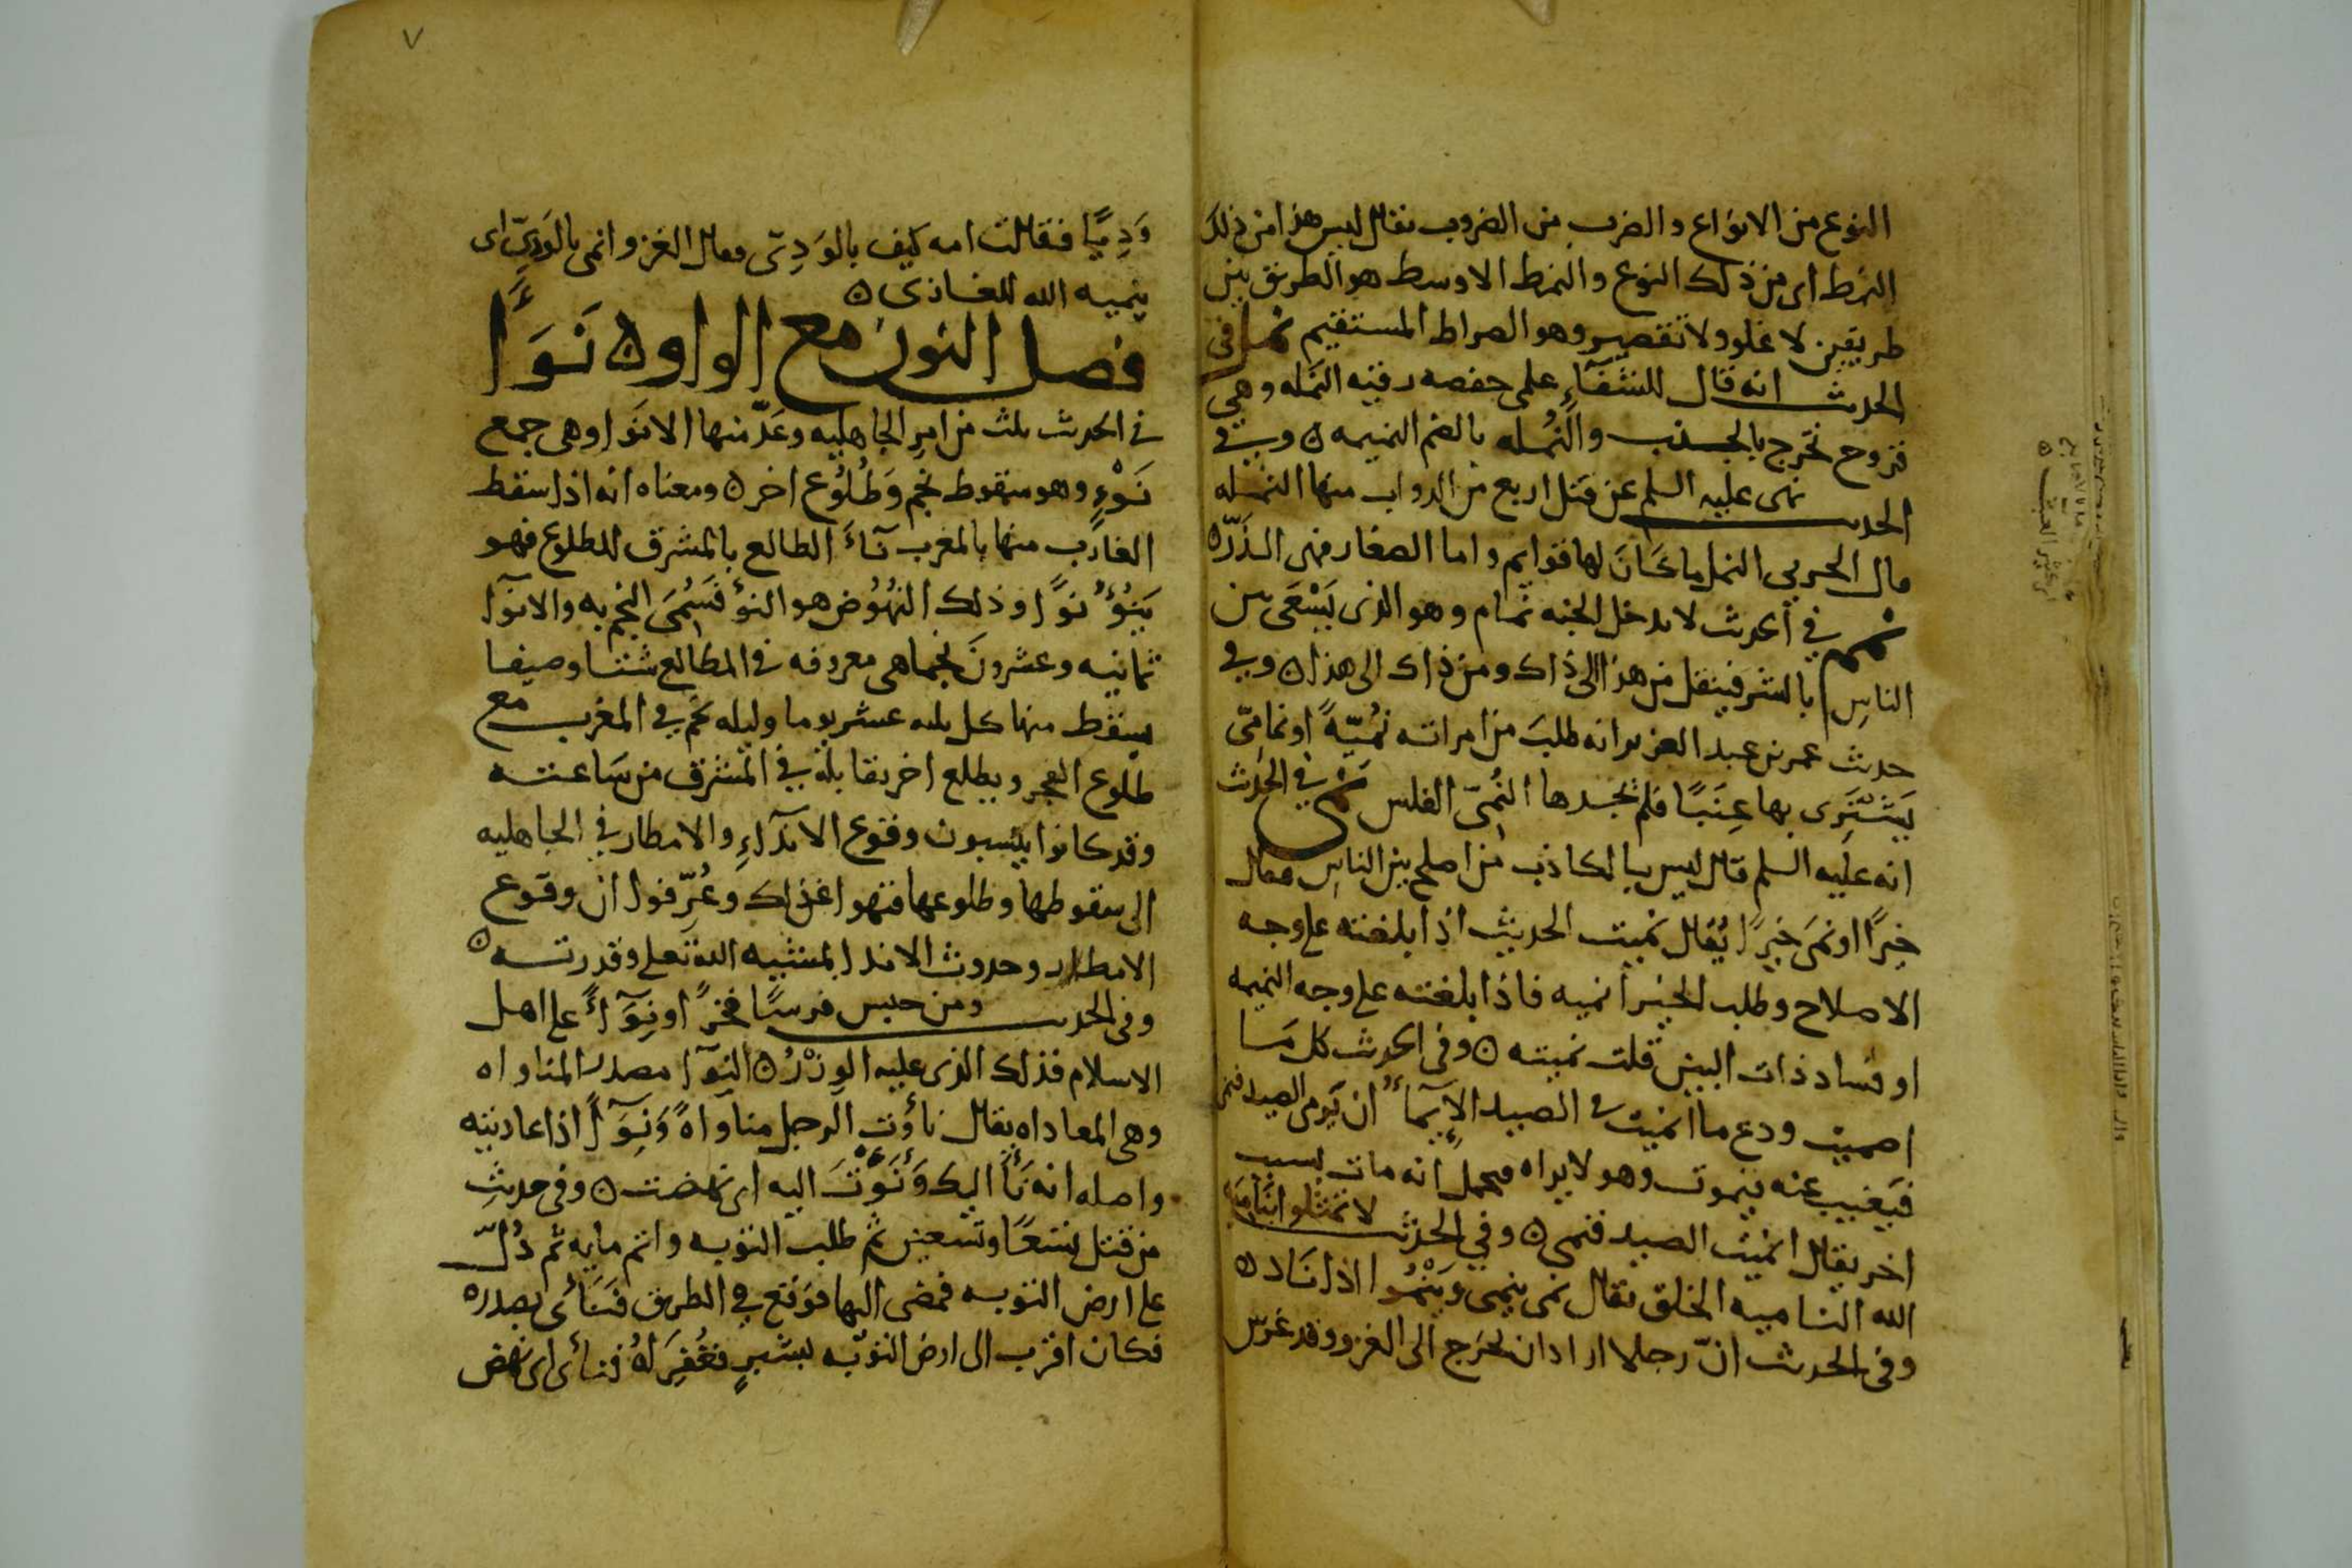 النوع من الانواع والضرب من الضروب يقال ليس هذا من ذلك
النمط اى من ذلك النوع والنمط الاوسط هو الطريق بين
طريقين لا غلو ولا تقصير وهو الصراط المستقيم نمل فى
الحديث انه قال للشفآء على حفصه رقيه النمله وهى
قروح تخرج بالجنب والنُمله بالضم النميمه ٥ وفى
الحديث نهى عليه السلم عن قتل اربع من الدواب منها النمله
قال الحربى النمل ما كانَ لها قوايم واما الصغار فهى الذَرّه
نمم فى الحديث لا يدخل الجنه نمام وهو الذى يَسْعَى بين
الناسِ بالشر فينقل من هذا الى ذاك ومن ذاك الى هذا ٥ وفى
حديث عمر بن عبد العزيز انه طلبَ من امراته نُمّيّةً او نمامىّ
يَشْتَرِى بها عِنَبًا فلم يجدها النُمىّ الفلس نمى فى الحديث
انه عليه السلم قال ليس بالكاذب من اصلح بين الناسِ فقال
خيرًا او نمَى خيرًا يُقال نميت الحديث اذا بلغته على وجه
الاصلاح وطلب الخير انميه فاذا بلغته على وجه النميمه
او فساد ذات البين قلت نميته ٥ وفى الحديث كل مَا
اصميت ودع ما انميت فى الصيد الإيمآءُ ان يَرمى الصيد
فيَغيب عنه فيموت وهو لا يراه فيحمل انه مات بسبب
اخر يقال انميت الصيد فنمى ٥ وفى الحديث لا تمثلوا بنَامِيَة
الله الناميه الخلق يقال نمى ينمى ويَنْمُوا اذا زَاد ٥
وفى الحديث انّ رجلا اراد ان يخرَج الى الغزو وقد غرسَ
٧
وَدِيًّا فقالت امه كيف بالوَدِىّ فقال الغزو انمى بالوَدِىّ اى
ينميه الله للغازى ٥
فصل النون مع الواو ٥ نَوَأَ
فى الحديث ثلث من امرِ الجاهليه وعَدّ منها الانوَا وهى جمع
نَوْءٍ وهو سقوط نجم وَطُلُوع اخر ٥ ومعناه انه اذا سقط
الغارب منها بالمغرب نآءَ الطالع بالمشرق للطلوع فهو
يَنُوْءُ نوًا وذلك النُهُوُض هو النوْءُ فَسُمِىَ النجم به والانوآ
ثمانيه وعشرونَ نجما هى معروفه فى المطالع شتا وصيفا
يسقط منها كل ثلثه عشر يوما وليله نجم فى المغرب مع
طلوع الفجر ويطلع اخر يقابله فى المشرق من سَاعته
وقد كانوا ينسبون وقوع الاندآءِ والامطار فى الجاهليه
الى سقوطها وطلوعها فنهوا عن ذلك وعُرِّفوا ان وقوع
الامطار وحدوث الاندا بمشيه الله تعلى وقدرته ٥
وفى الحديث ومن حبس فرسًا فخرًا ونِوَآءً على اهل
الاسلام فذلك الذى عليه الوِزْرُ ٥ النِوَآ مصدر المناواه
وهى المعاداه يقال ناؤت الرجل مناوَاةً وَنِوَآءً اذا عاديته
واصله انه نَاَ اليك وَنَوْتَ اليه اى نهضت ٥ وفى حديثِ
من قتل تسعًا وتسعين ثم طلب التوبه واتم مايه ثم دُلّ
على ارض التوبه فمضى اليها فوَقع فى الطريق فَنَأى بصدره
فكان اقرب الى ارض التوبه بشبرٍ فغُفِرَ لهُ فنأى اى نهض